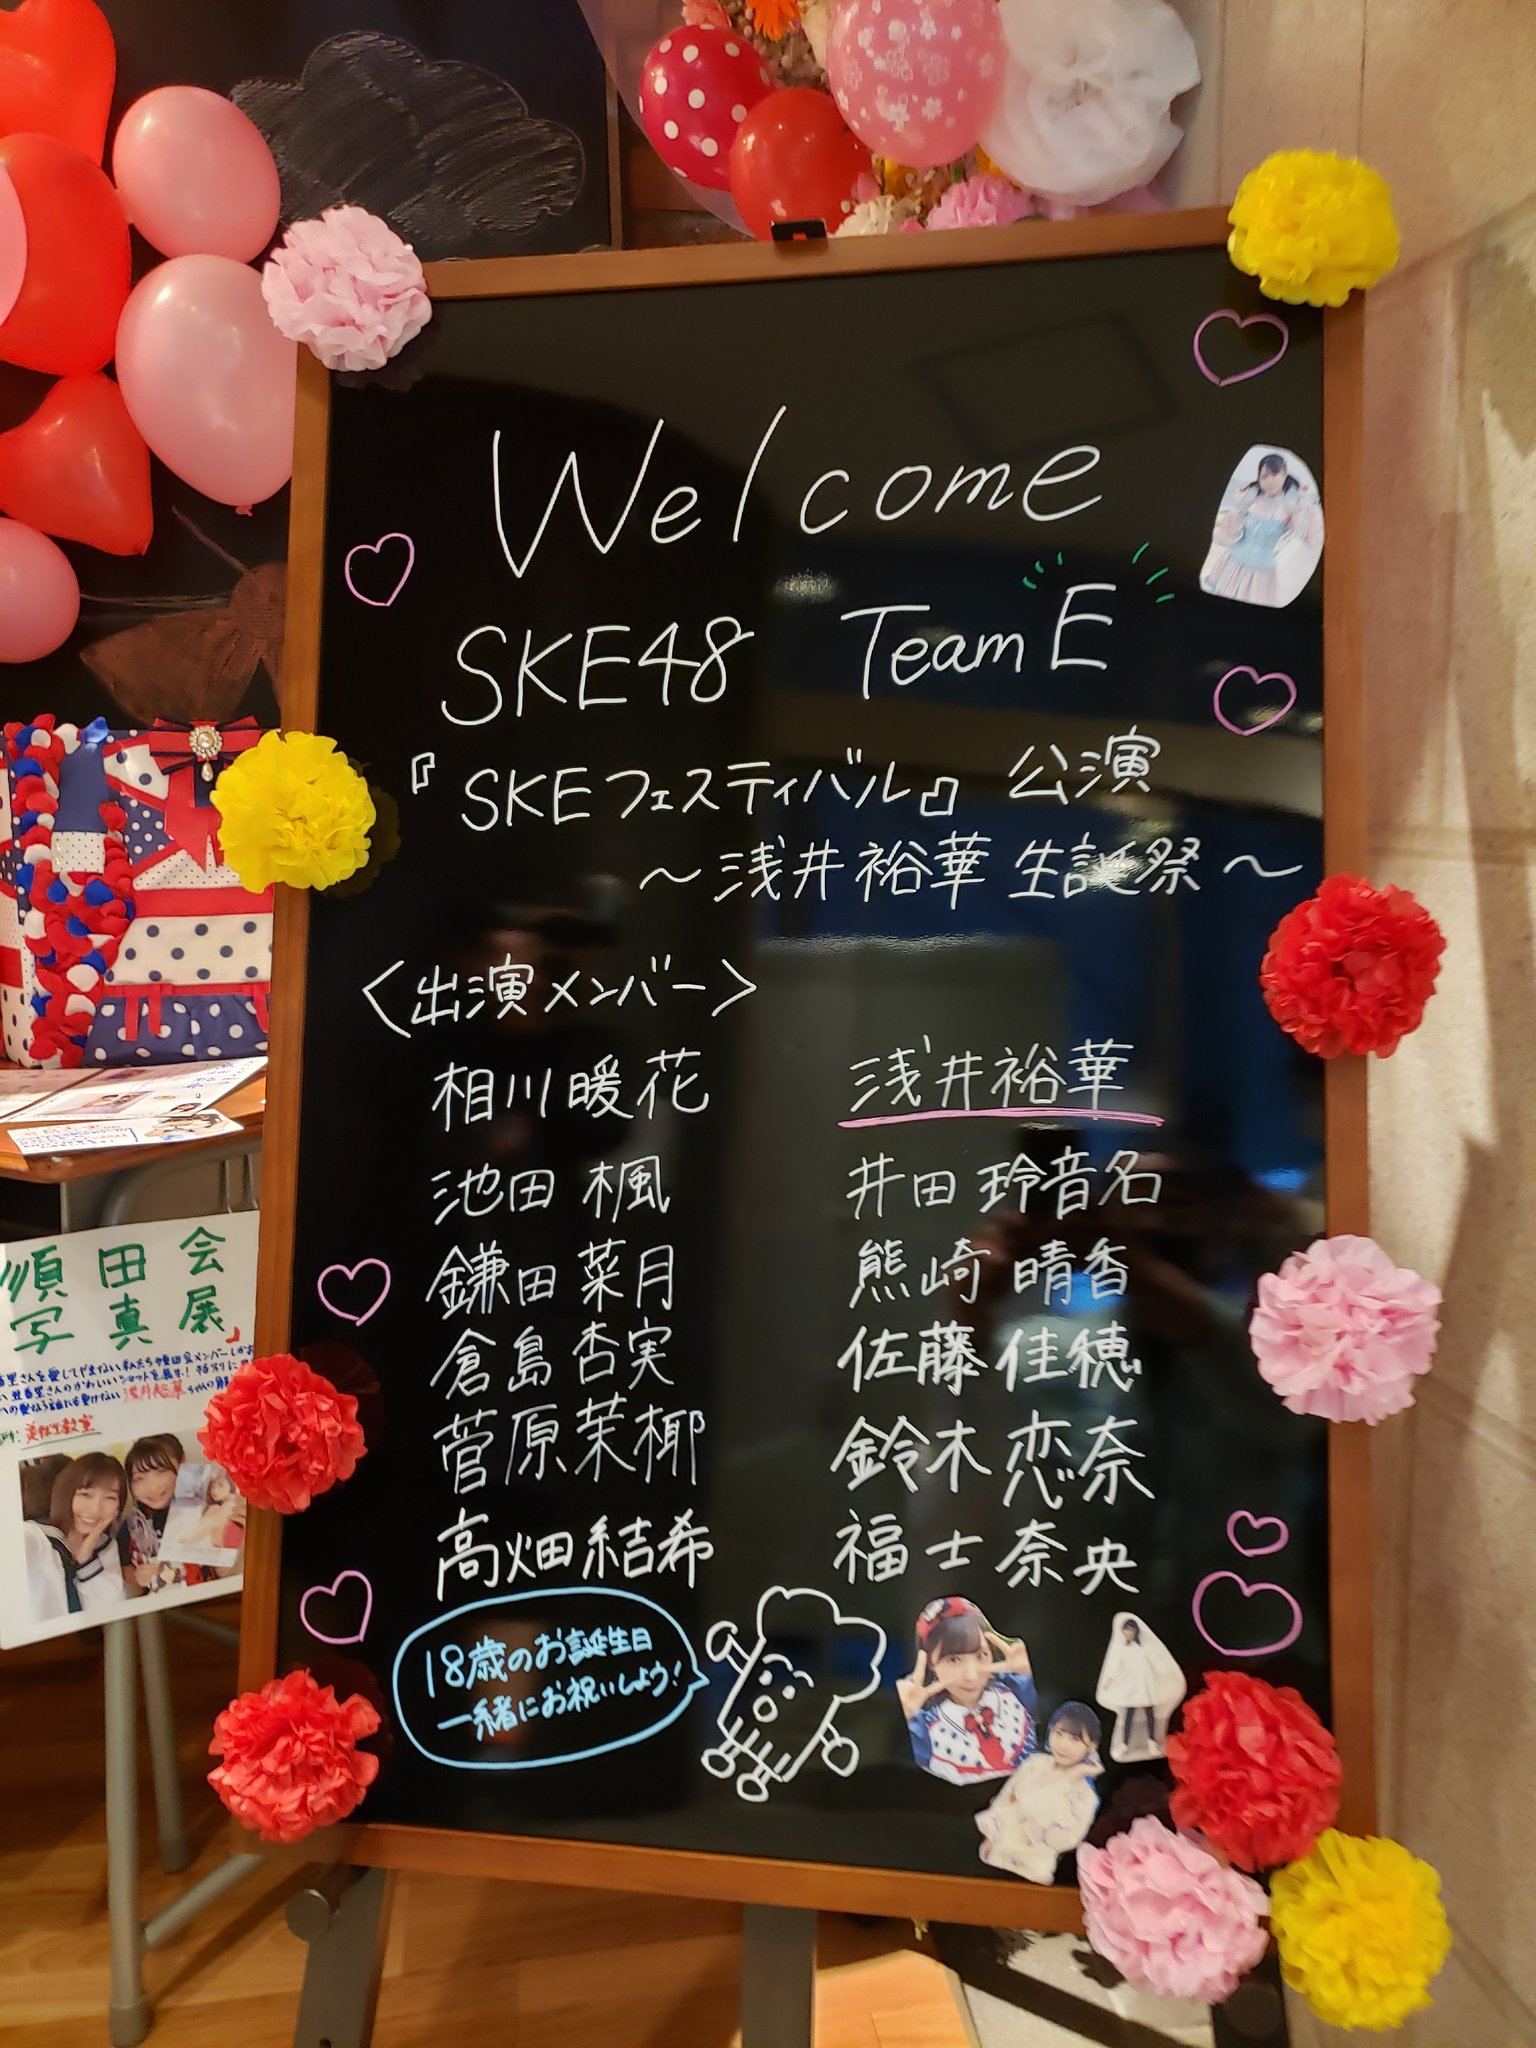 Welcome
SKE48 Team E
『SKEフェスティバル』公演
～浅井裕華生誕祭～
<出演メンバー>
相川暖花 浅井裕華
池田楓 井田玲音名
鎌田菜月 熊崎晴香
倉島杏実 佐藤佳穂
菅原茉椰 鈴木恋奈
高畑結希 福士奈央
18歳のお誕生日
一緒にお祝いしよう!
須田会
写真展」
浅井裕華
美術室教室